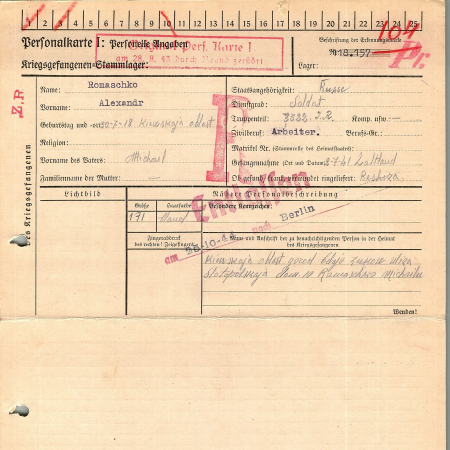 1 2 3 4 5 6 7 8 9 10 11 12 13 14 15 16 17 18 19 20 21 22 23 24 25
104
Personalkarte I: Personelle Angaben
Kriegsgefangenen-Stammlager:
Pers. Karte I
am 28.9.43 durch Brand zerstört
Beschriftung der Erkennungsmarke
Nr. 18.157
Lager:
Pr.
Z.R
des Kriegsgefangenen
Name: Romaschko
Vorname: Alexandr
Geburtstag und -ort 30.7.18.
Religion:
Vorname des Vaters: Michail
Familienname der Mutter: —
Staatsangehörigkeit: Russe
Dienstgrad: Soldat
Truppenteil: I.R. Komp. usw.: —
Zivilberuf: Arbeiter. Berufs-Gr.:
Matrikel Nr. (Stammrolle des Heimatstaates):
Gefangennahme (Ort und Datum):
Ob gesund, krank, verwundet eingeliefert:
Lichtbild
Nähere Personalbeschreibung
Größe
Haarfarbe
Besondere Kennzeichen:
171
blond
Entlassen
am 28.10.4 nach Berlin
Fingerabdruck
des rechten Zeigefingers
Name und Anschrift der zu benachrichtigenden Person in der Heimat
des Kriegsgefangenen
Wenden!